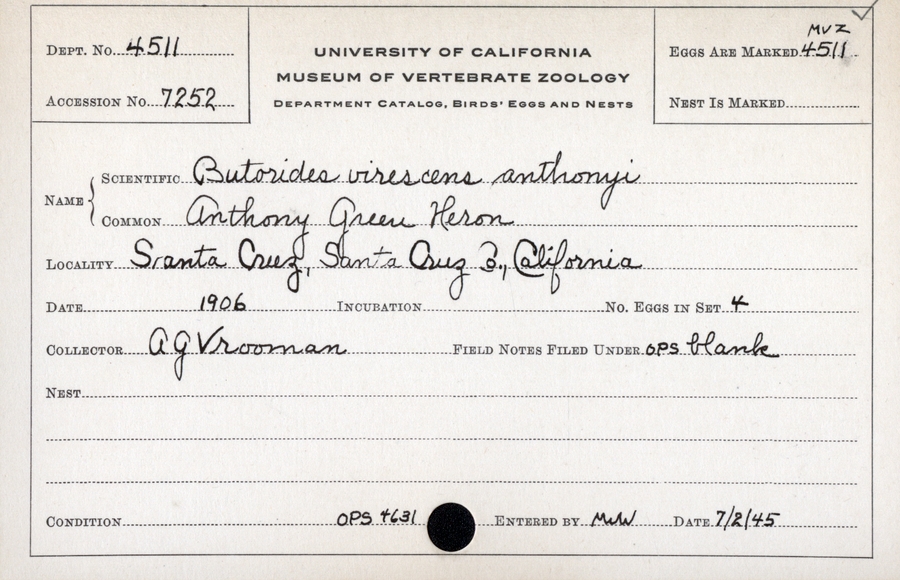 Dept. No. 4511
Accession No. 7252
UNIVERSITY OF CALIFORNIA
MUSEUM OF VERTEBRATE ZOOLOGY
Department Catalog, Birds' Eggs and Nests
MVZ
Eggs Are Marked 4511
Nest Is Marked
Name { Scientific Butorides virescens anthonyi
Common Anthony Green Heron
Locality Santa Cruz, Santa Cruz Co., California
Date 1906 Incubation No. Eggs in Set 4
Collector A G Vrooman Field Notes Filed Under OPS blank
Nest
Condition OPS 4631 Entered by MWW Date 7/2/45